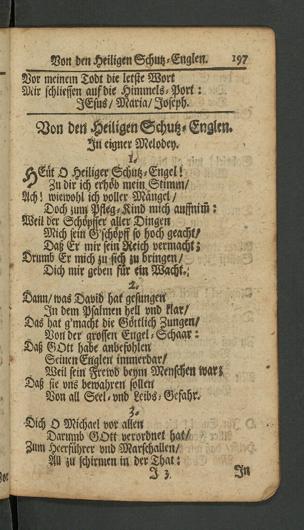 Von den Heiligen Schutz-Englen. 197
Vor meinem Todt die letste Wort
Mir schliessen auf die Himmels-Port:
JEsus/ Maria/ Joseph.
Von den Heiligen Schutz-Englen.
Jn eigner Melodey.
1.
HEüt O Heiliger Schutz-Engel!
Zu dir ich erhöb mein Stimm/
Ach! wiewohl ich voller Mängel/
Doch zum Pfleg-Kind mich auffnim̃:
Weil der Schöpffer aller Dingen
Mich sein G'schöpff so hoch geacht/
Daß Er mir sein Reich vermacht;
Drumb Er mich zu sich zu bringen/
Dich mir geben für ein Wacht.
2.
Dann/ was David hat gesungen
Jn dem Psalmen hell und klar/
Das hat g'macht die Göttlich Zungen/
Von der grossen Engel-Schaar:
Daß GOtt habe anbefohlen
Seinen Englen immerdar/
Weil sein Frewd beym Menschen war;
Daß sie uns bewahren sollen
Von all Seel- und Leibs-Gefahr.
3.
Dich O Michael vor allen
Darumb GOtt verordnet hat/
Zum Heerführer und Marschallen/
All zu schirmen in der That:
J 3. Jn